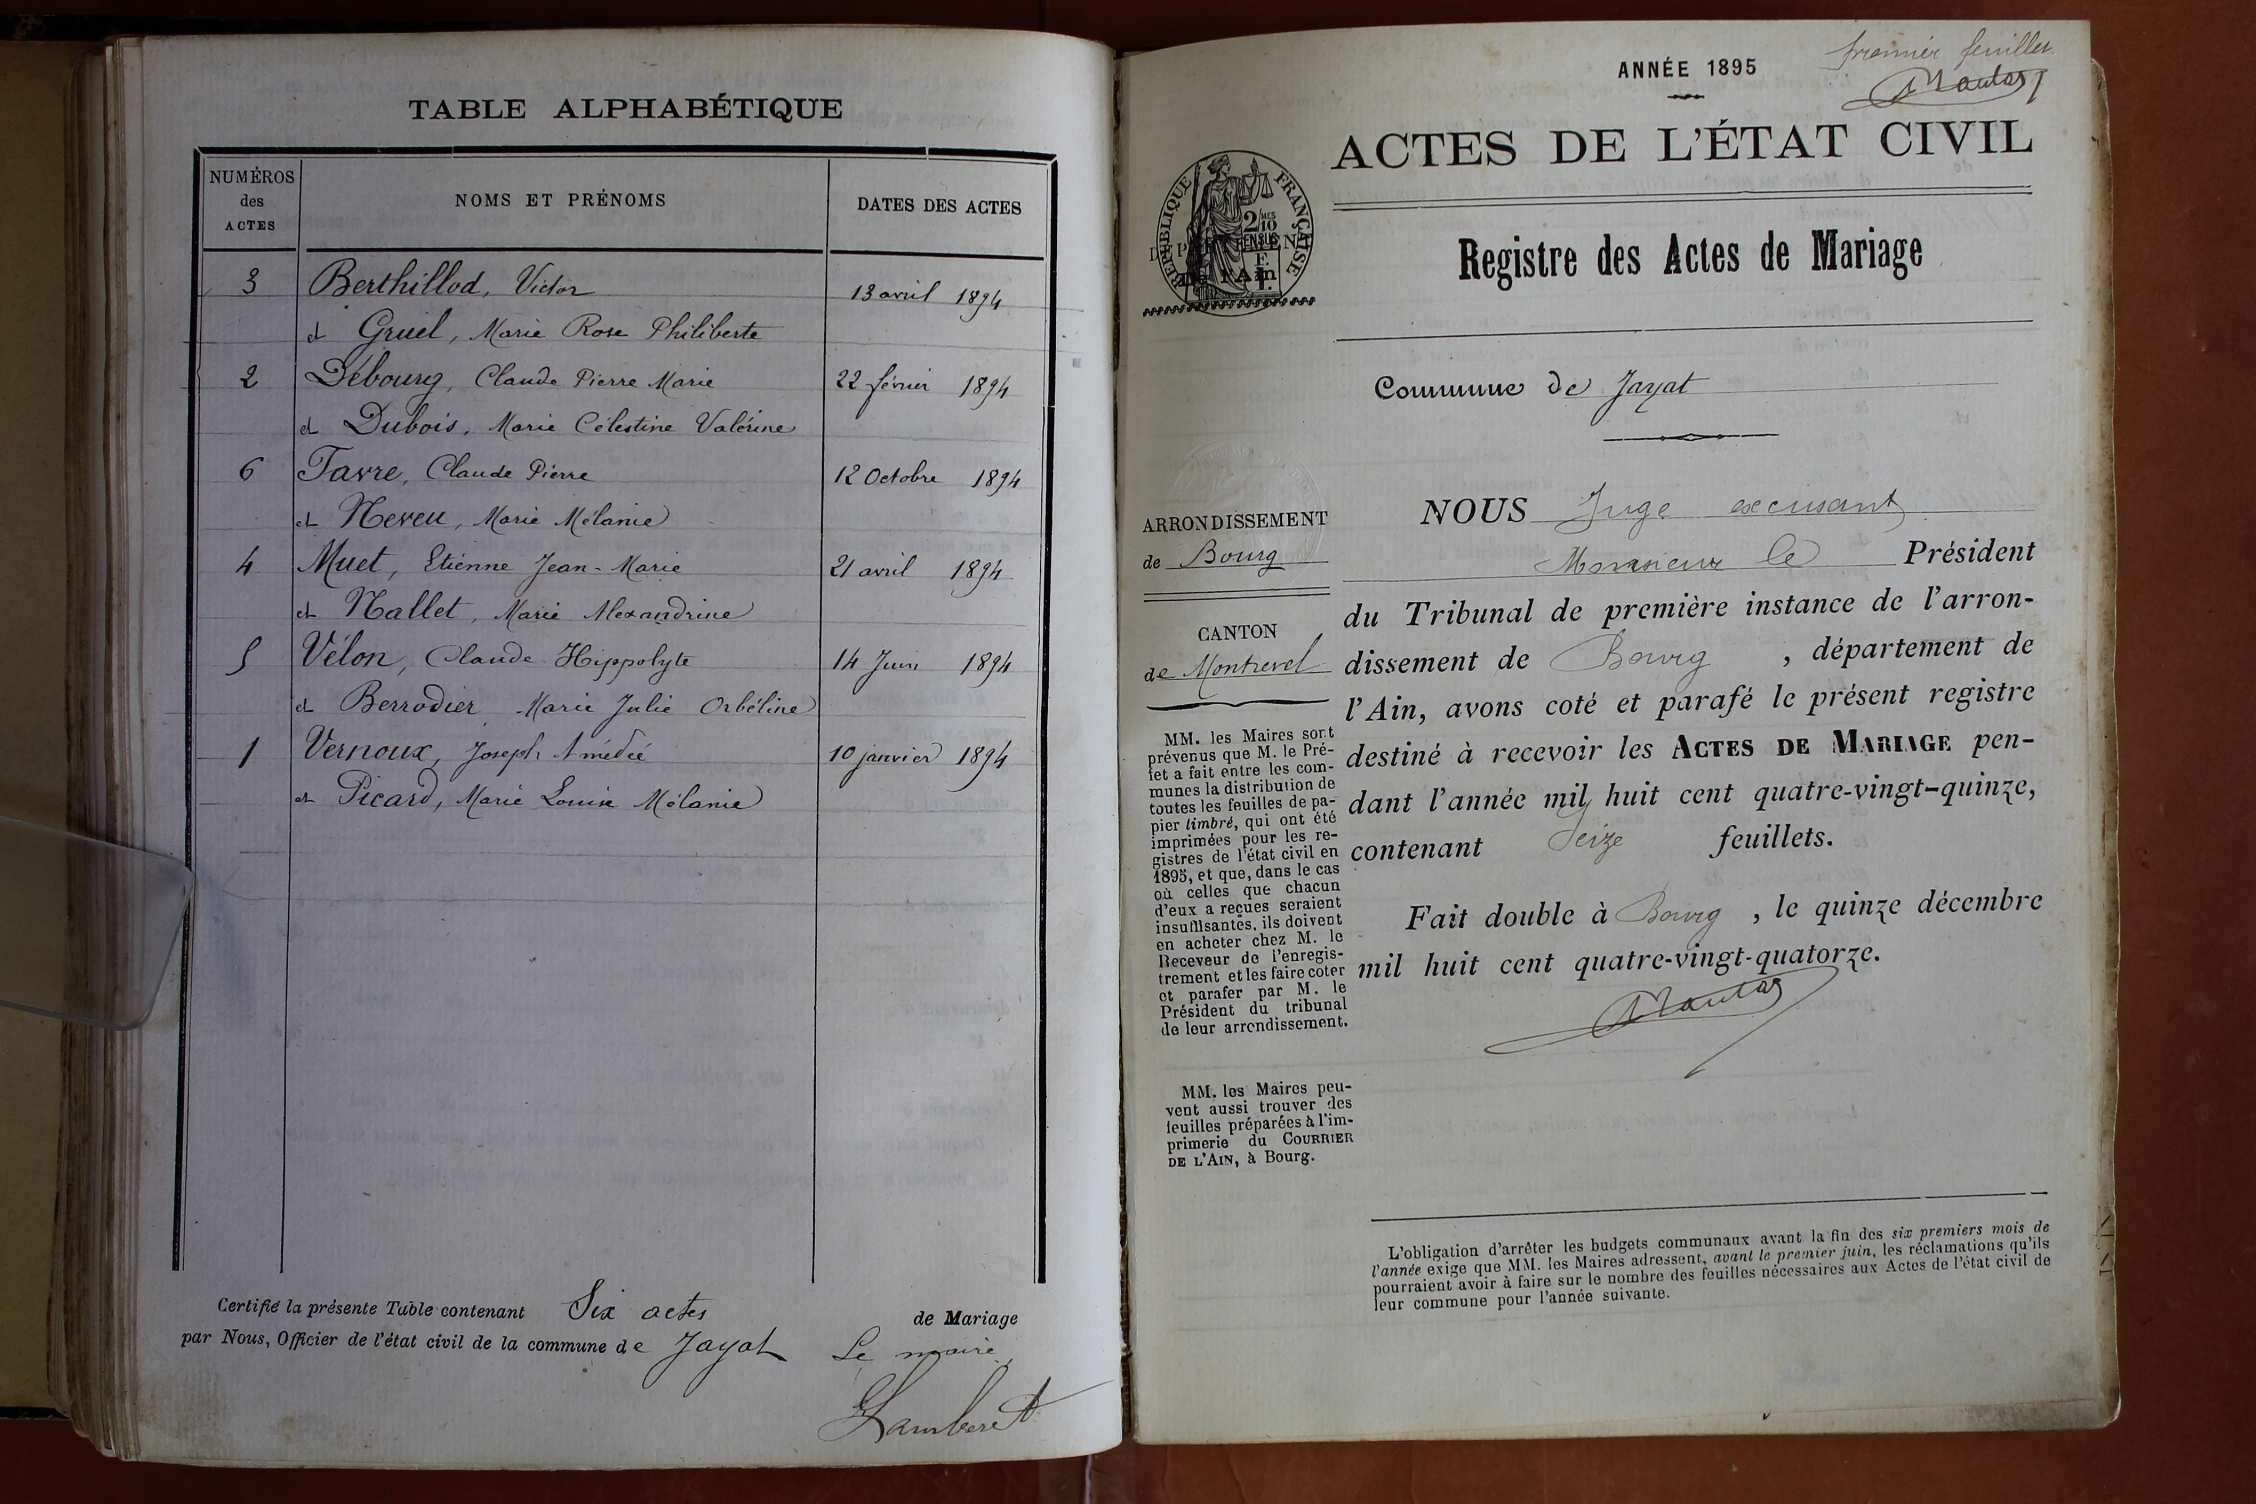 TABLE ALPHABÉTIQUE
NUMÉROS
des
ACTES
NOMS ET PRÉNOMS
DATES DES ACTES
3 Berthillod, Victor 13 avril 1894
et Gruel, Marie Rose Philiberte
2 Débourg, Claude Pierre Marie 22 février 1894
et Dubois, Marie Célestine Valérine
6 Favre, Claude Pierre 12 Octobre 1894
et Neveu, Marie Mélanie
4 Muet, Etienne Jean-Marie 21 avril 1894
et Nallet, Marie Alexandrine
5 Vélon, Claude Hippolyte 14 Juin 1894
et Berrodier Marie Julie Orbéline
1 Vernoux, Joseph Amédée 10 janvier 1894
et Picard, Marie Louise Mélanie
Certifié la présente Table contenant Six actes de Mariage
par Nous, Officier de l'état civil de la commune de Jayat Le maire
Lamberet
premier feuillet
ANNÉE 1895
ACTES DE L'ÉTAT CIVIL
RÉPUBLIQUE FRANÇAISE
2/10
EN SUS
DÉPARTEMENT
de l'Ain
Registre des Actes de Mariage
Commune de Jayat
ARRONDISSEMENT
de Bourg
CANTON
de Montrevel
MM. les Maires sont
prévenus que M. le Pré-
fet a fait entre les com-
munes la distribution de
toutes les feuilles de pa-
pier timbré, qui ont été
imprimées pour les re-
gistres de l'état civil en
1895, et que, dans le cas
où celles que chacun
d'eux a reçues seraient
insuffisantes, ils doivent
en acheter chez M. le
Receveur de l'enregis-
trement et les faire coter
et parafer par M. le
Président du tribunal
de leur arrondissement.
MM. les Maires peu-
vent aussi trouver des
feuilles préparées à l'im-
primerie du COURRIER
DE L'AIN, à Bourg.
NOUS Juge excusant
Monsieur le Président
du Tribunal de première instance de l'arron-
dissement de Bourg , département de
l'Ain, avons coté et parafé le présent registre
destiné à recevoir les ACTES DE MARIAGE pen-
dant l'année mil huit cent quatre-vingt-quinze,
contenant Seize feuillets.
Fait double à Bourg , le quinze décembre
mil huit cent quatre-vingt-quatorze.
L'obligation d'arrêter les budgets communaux avant la fin des six premiers mois de
l'année exige que MM. les Maires adressent, avant le premier juin, les réclamations qu'ils
pourraient avoir à faire sur le nombre des feuilles nécessaires aux Actes de l'état civil de
leur commune pour l'année suivante.